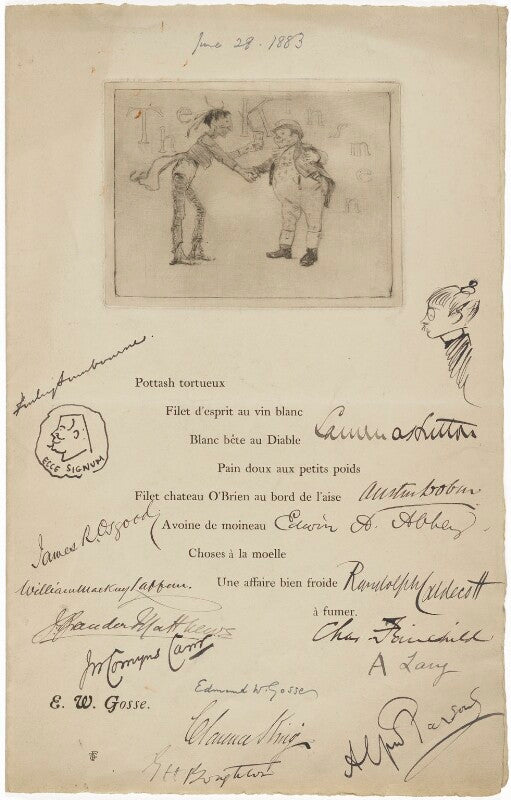 June 28. 1883
The Kinsmen
Linley Sambourne.
Pottash tortueux
Filet d'esprit au vin blanc
Blanc bête au Diable
Laurence Hutton
ECCE SIGNUM
Pain doux aux petits poids
Filet chateau O'Brien au bord de l'aise
Austin Dobson
James R. Osgood
Avoine de moineau
Edwin A. Abbey.
Choses à la moelle
William Mackay Laffan.
Une affaire bien froide
Randolph Caldecott
à fumer.
J. Brander Matthews
Chas Fairchild
J W Comyns Carr
A Lang
E. W. Gosse.
Edmund W. Gosse
Clarence King
Alfred Parsons
G H Boughton